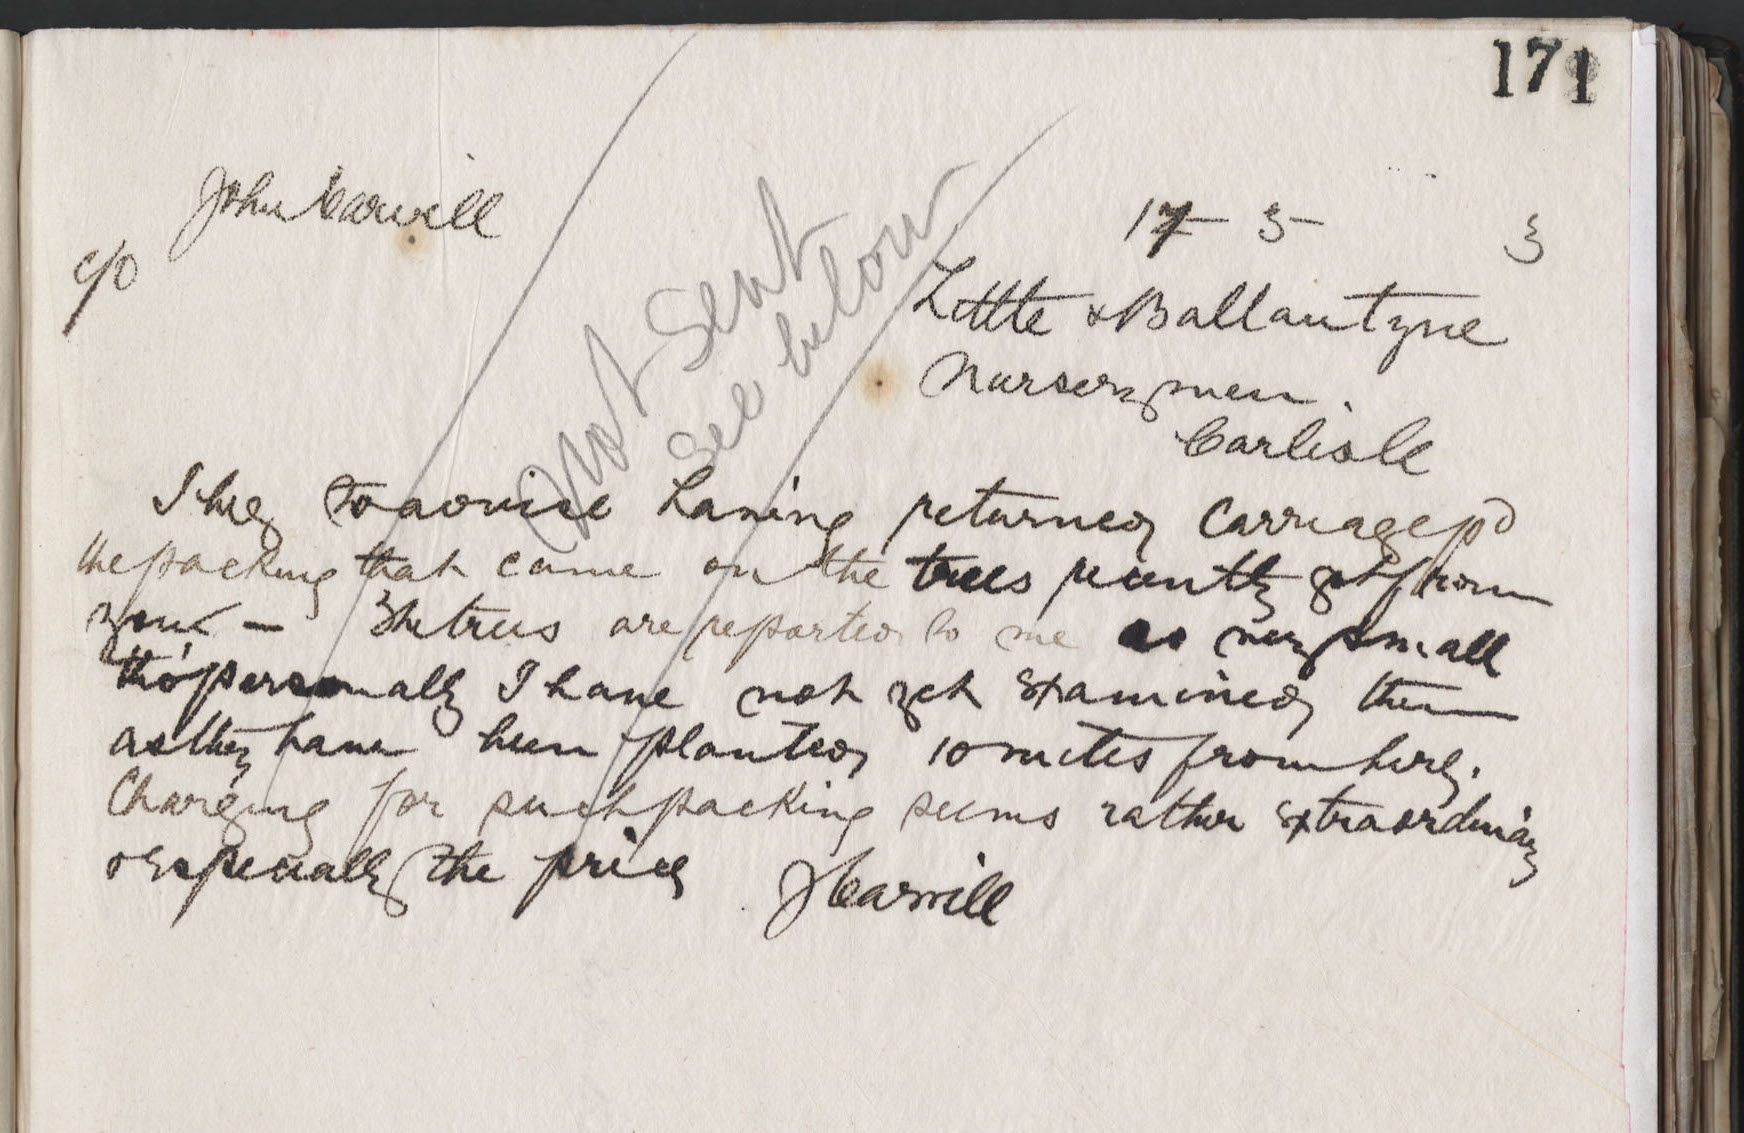 171
John Carvill
c/o
17 - 5 - 3
Little & Ballantyne
Nurserymen.
Carlisle
(Not Sent
See below
I beg to advise having returned carriage pd
the packing that came on the trees recently got from
you - The trees are reported to me as very small
tho' personally I have not yet examined them
as they have been planted 10 miles from here.
Charging for such packing seems rather extraordinary
& especially the price
J Carvill